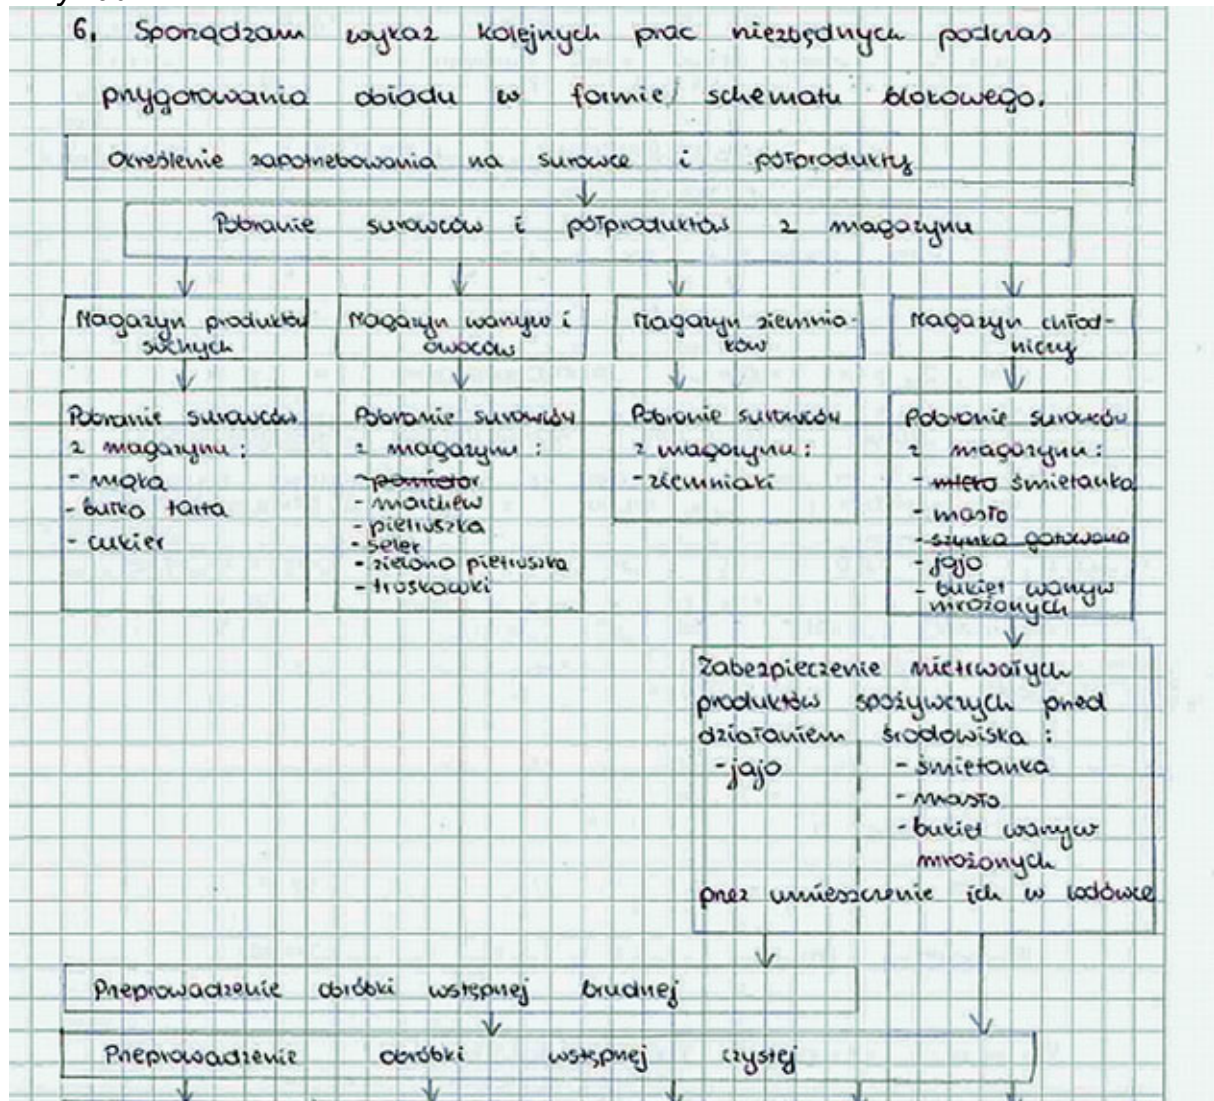 6. Sporządzam wykaz kolejnych prac niezbędnych podczas
przygotowania obiadu w formie schematu blokowego.
Określenie zapotrzebowania na surowce i półprodukty
Pobranie surowców i półproduktów z magazynu
Magazyn produktów
suchych
Pobranie surowców
z magazynu:
- mąka
- bułka tarta
- cukier
Magazyn warzyw i
owoców
Pobranie surowców
z magazynu:
- pomidor
- marchew
- pietruszka
- seler
- zielona pietruszka
- truskawki
Magazyn ziemnia-
ków
Pobranie surowców
z magazynu:
- ziemniaki
Magazyn chłod-
niczy
Pobranie surowców
z magazynu:
- mleko śmietanka
- masło
- szynka gotowana
- jajo
- bukiet warzyw
mrożonych
Zabezpieczenie nietrwałych
produktów spożywczych przed
działaniem środowiska:
- jajo
- śmietanka
- masło
- bukiet warzyw
mrożonych
przez umieszczenie ich w lodówce
Przeprowadzenie obróbki wstępnej brudnej
Przeprowadzenie obróbki wstępnej czystej